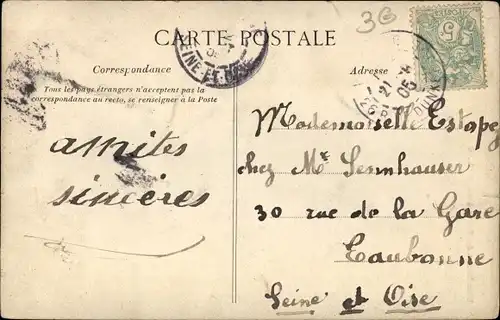 3€
CARTE POSTALE
Correspondance
Adresse
Tous les pays étrangers n'acceptent pas la
correspondance au recto, se renseigner à la Poste
SEINE-ET-OISE
5
21
05
DUNK
amités
sincères
Mademoiselle Estopey
chez Mr Sennhauser
30 rue de la Gare
Eaubonne
Seine et Oise